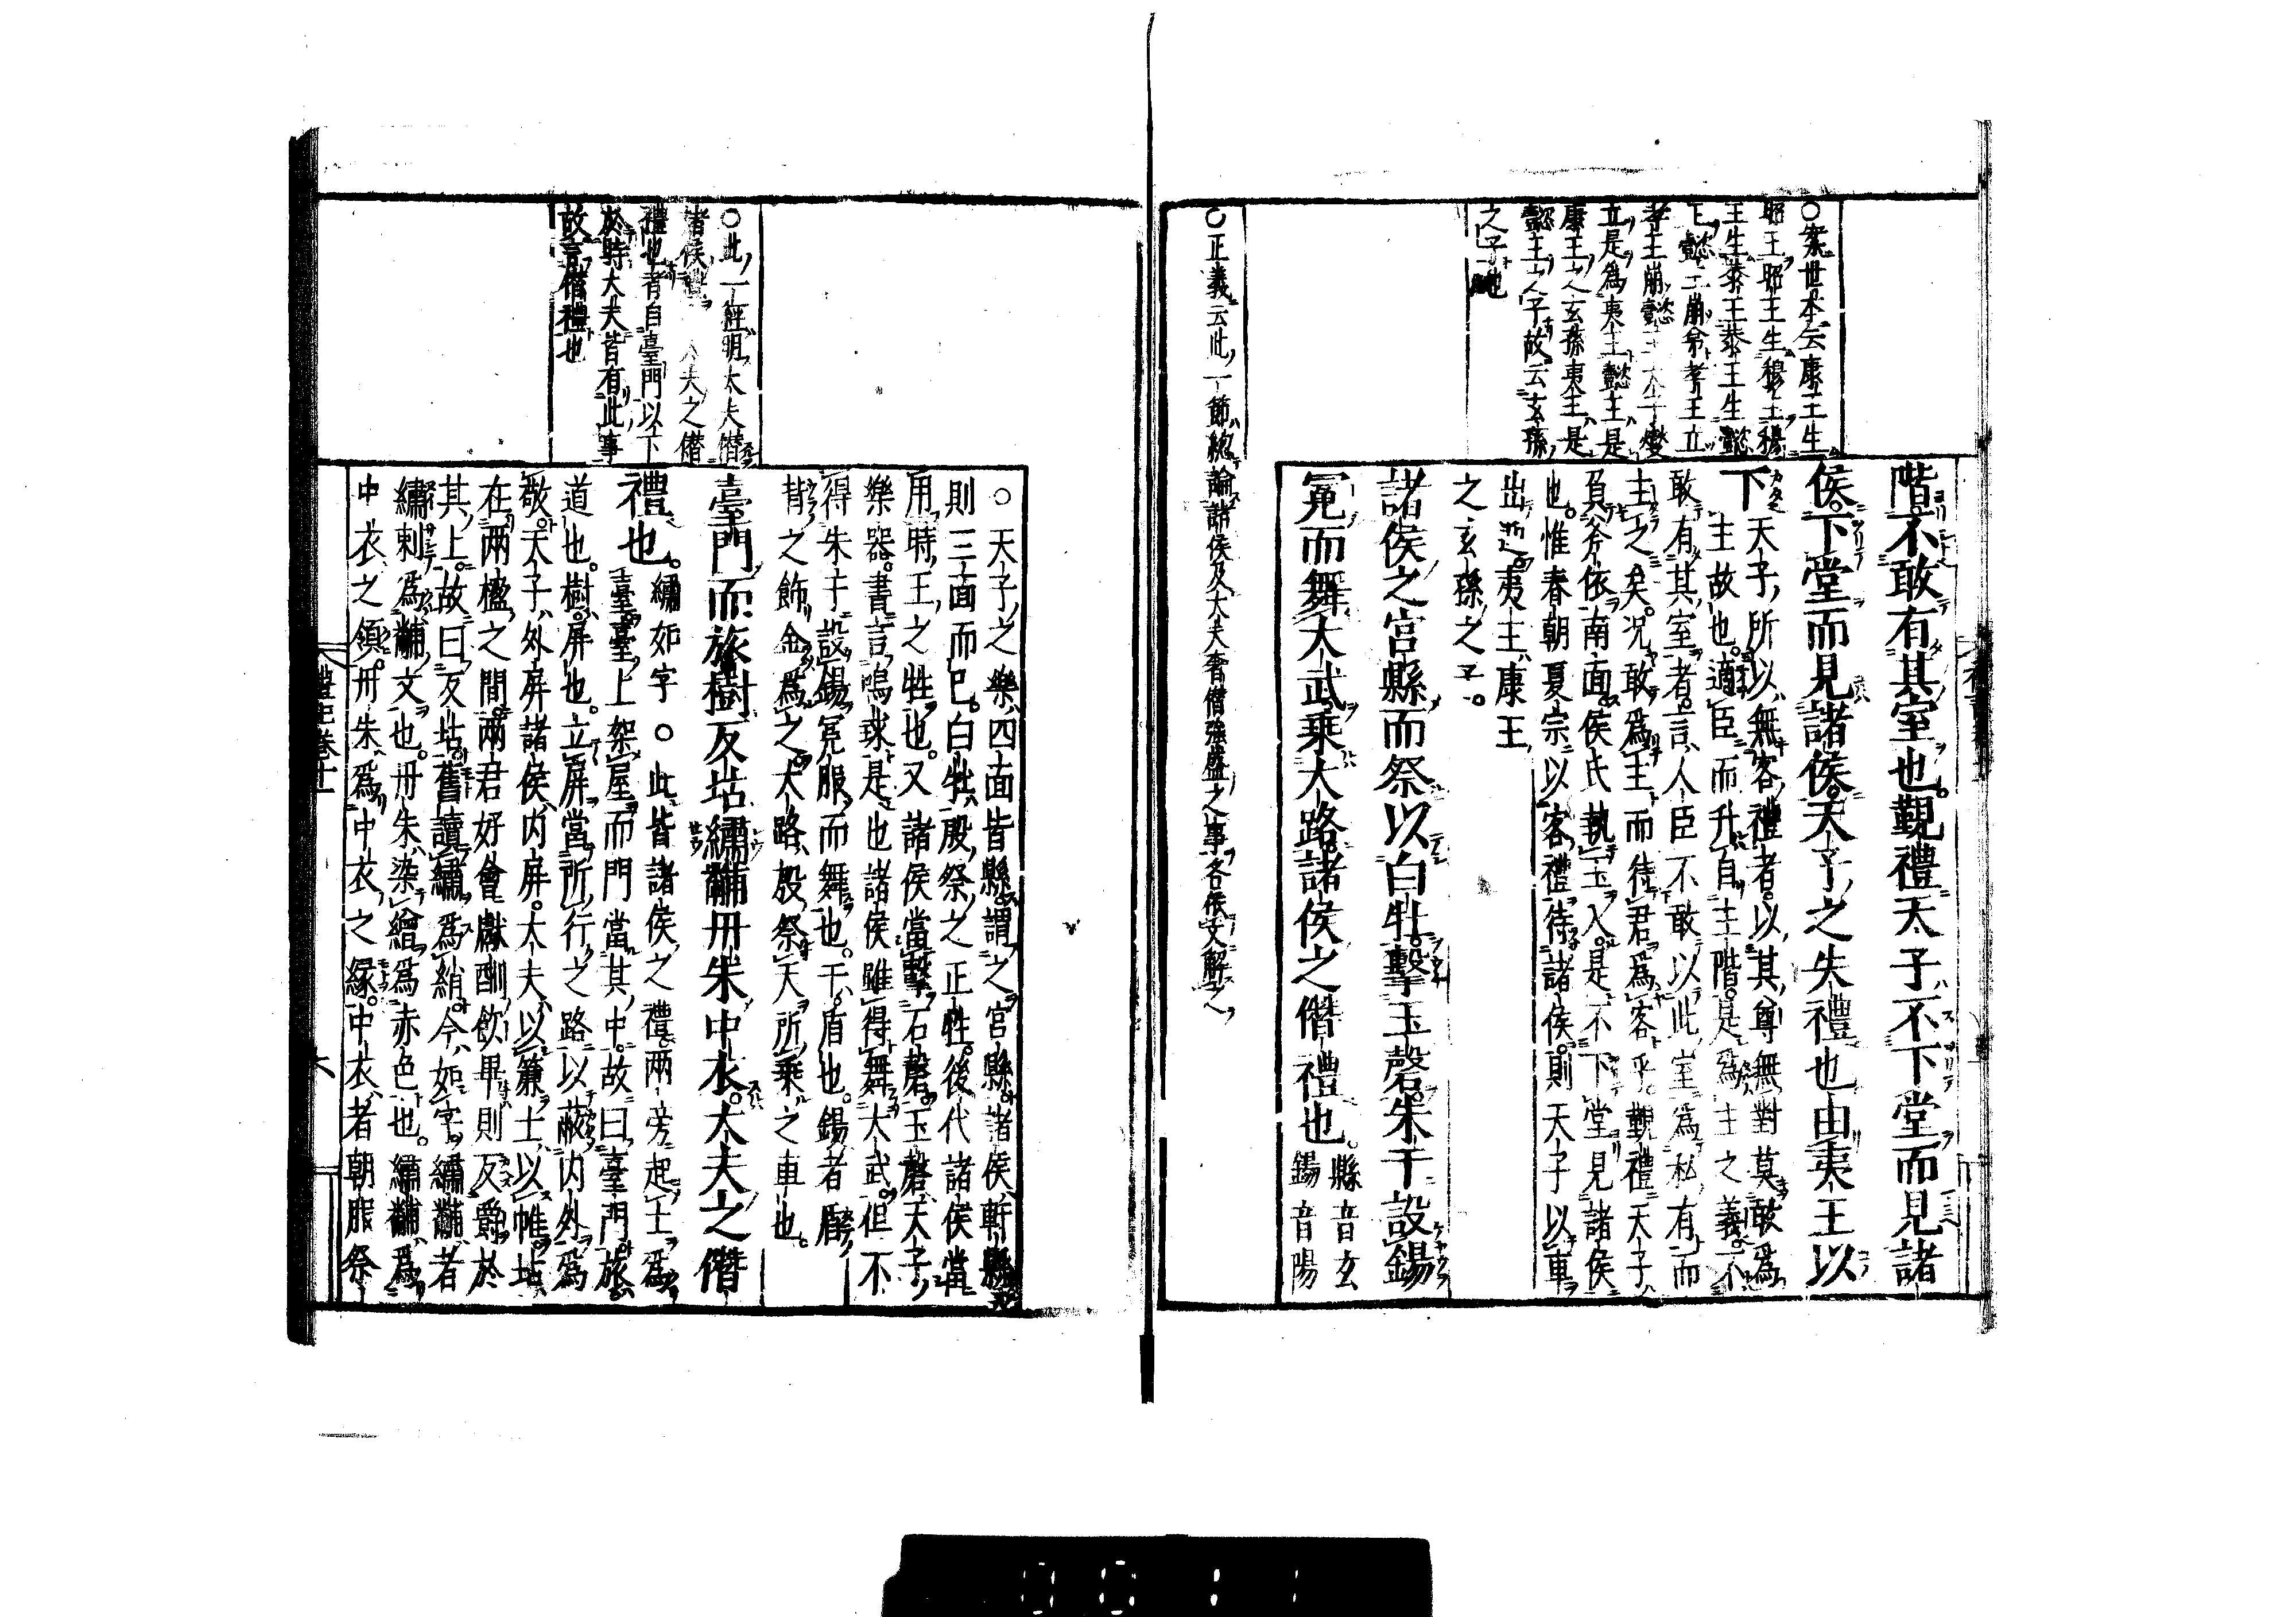 階不敢有其室也覲禮天子不下堂而見諸
侯下堂而見諸侯天子之失禮也由夷王以
下
天子所以無客禮者以其尊無對莫敢爲
主故也適臣而升自主階是爲主之義不
敢有其室者言人臣不敢以此室爲私有而
主之矣况敢爲主而待君爲客乎覲禮天子
負斧依南面侯氏執玉入是不下堂見諸侯
也惟春朝夏宗以客禮待諸侯則天子以車
出迎夷王康王
之玄孫之子
諸侯之宮縣而祭以白牡擊玉磬朱干設錫
冕而舞大武乘大路諸侯之僭禮也
縣音玄
錫音陽
○案世本云康王生
昭王昭王生穆王穆
王生恭王恭王生懿
王懿王崩弟孝王立
孝王崩懿王太子燮
立是爲夷王懿王是
康王之玄孫夷王是
懿王之子故云玄孫
之子也
○正義云此一節緫論諸侯及大夫奢僭強盛之事各依文解之
○天子之樂四面皆縣謂之宮縣諸侯軒縣
則三面而已白牡殷祭之正牲後代諸侯當
用時王之牲也又諸侯當擊石磬玉磬天子
樂器書言鳴球是也諸侯雖得舞大武但不
得朱干設錫冕服而舞也干盾也錫者盾
背之飾金爲之大路殷祭天所乘之車也
臺門而旅樹反坫繡黼丹朱中衣大夫之僭
禮也
繡如字○此皆諸侯之禮兩旁起土爲
臺臺上架屋而門當其中故曰臺門旅
道也樹屏也立屏當所行之路以蔽内外爲
敬天子外屏諸侯内屏大夫以簾士以帷坫
在兩楹之間兩君好會獻酬飲畢則反爵於
其上故曰反坫舊讀繡爲綃今如字繡黼者
繡刺爲黼文也丹朱染繒爲赤色也繡黼爲
中衣之領丹朱爲中衣之緣中衣者朝服祭
○此一經明大夫僭
諸侯禮 大夫之僭
禮也者自臺門以下
於時大夫皆有此事
故言僭禮也
禮記卷十一
0011